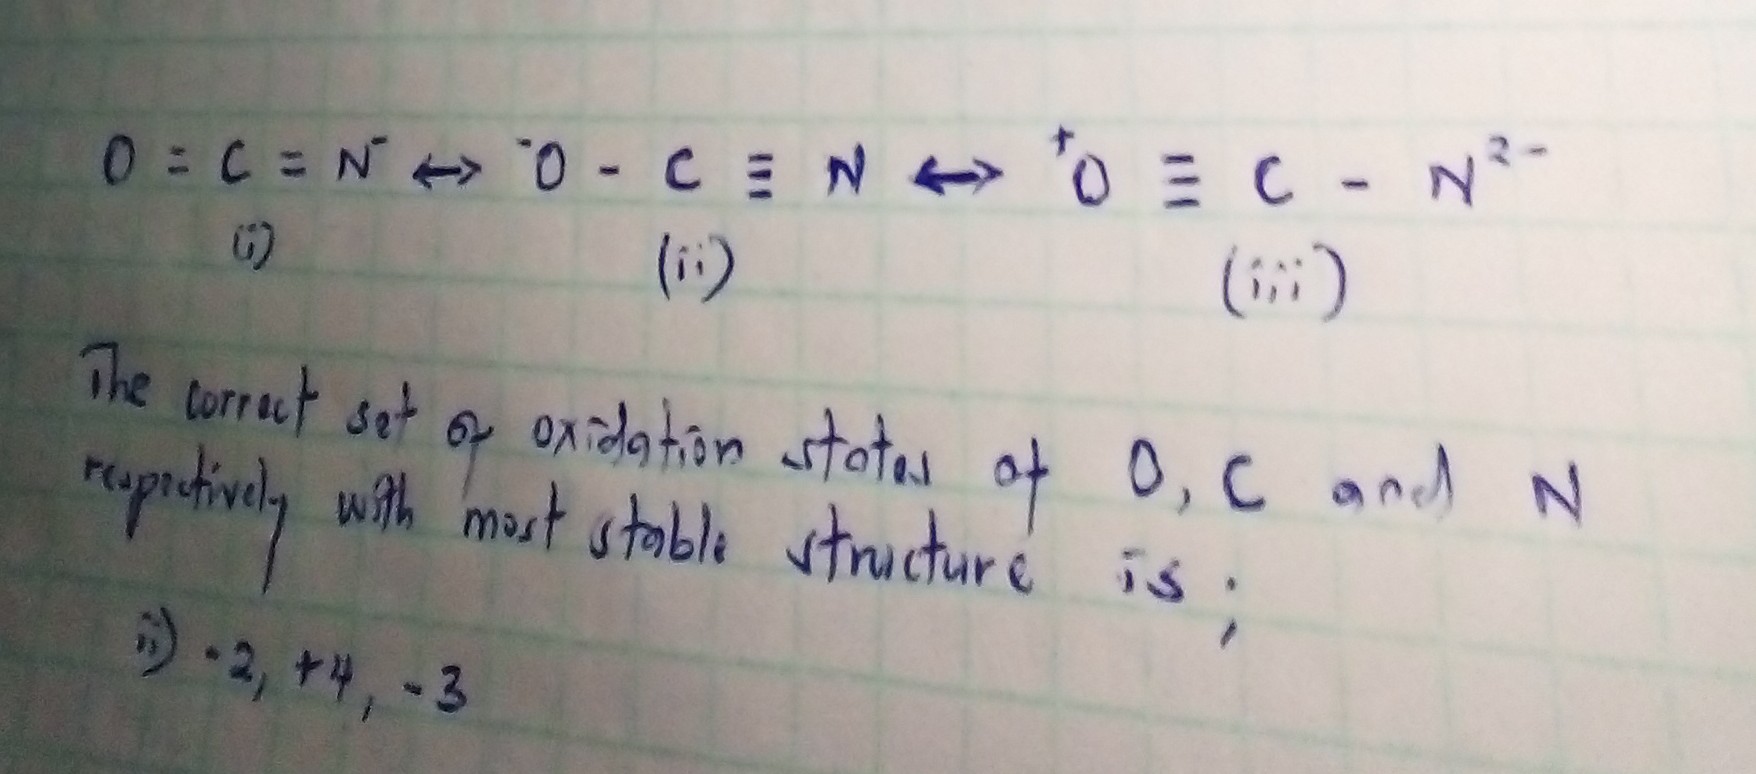 O = C = N⁻ ↔ ⁻O - C ≡ N ↔ ⁺O ≡ C - N²⁻
(i) (ii) (iii)
The correct set of oxidation states of O, C and N
respectively with most stable structure is;
ii) -2, +4, -3